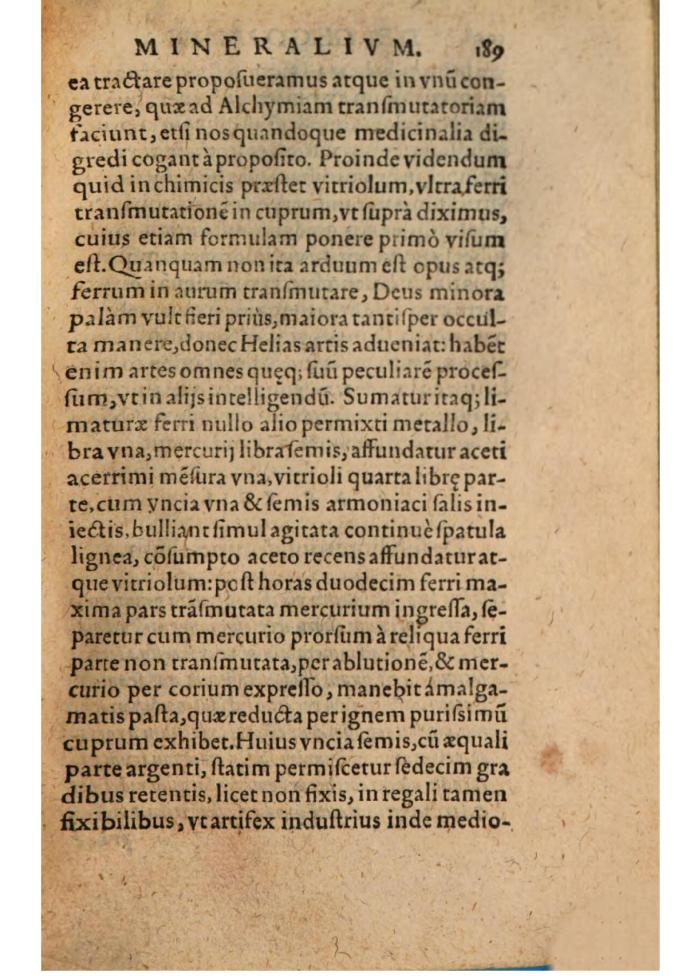 MINERALIVM. 189
ea tractare proposueramus atque in vnū con-
gerere, quæ ad Alchymiam transmutatoriam
faciunt, etsi nos quandoque medicinalia di-
gredi cogant à proposito. Proinde videndum
quid in chimicis præstet vitriolum, vltra ferri
transmutationē in cuprum, vt suprà diximus,
cuius etiam formulam ponere primò visum
est. Quanquam non ita arduum est opus atq;
ferrum in aurum transmutare, Deus minora
palàm vult fieri priùs, maiora tantisper occul-
ta manere, donec Helias artis adueniat: habēt
enim artes omnes quęq; suū peculiarē proces-
sum, vt in alijs intelligendū. Sumatur itaq; li-
maturæ ferri nullo alio permixti metallo, li-
bra vna, mercurij libra semis, affundatur aceti
acerrimi mēsura vna, vitrioli quarta librę par-
te, cum yncia vna & semis armoniaci salis in-
iectis, bulliant simul agitata continuè spatula
lignea, cōsumpto aceto recens affundatur at-
que vitriolum: post horas duodecim ferri ma-
xima pars trāsmutata mercurium ingressa, se-
paretur cum mercurio prorsum à reliqua ferri
parte non transmutata, per ablutionē, & mer-
curio per corium expresso, manebit ámalga-
matis pasta, quæ reducta per ignem purissimū
cuprum exhibet. Huius vncia semis, cū æquali
parte argenti, statim permiscetur sedecim gra
dibus retentis, licet non fixis, in regali tamen
fixibilibus, vt artifex industrius inde medio-